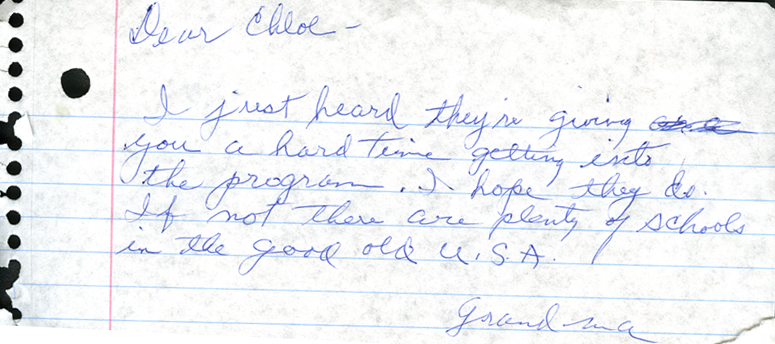 Dear Chloe -
I just heard they're giving
you a hard time getting into
the program. I hope they do.
If not there are plenty of schools
in the good old U.S.A.
Grandma